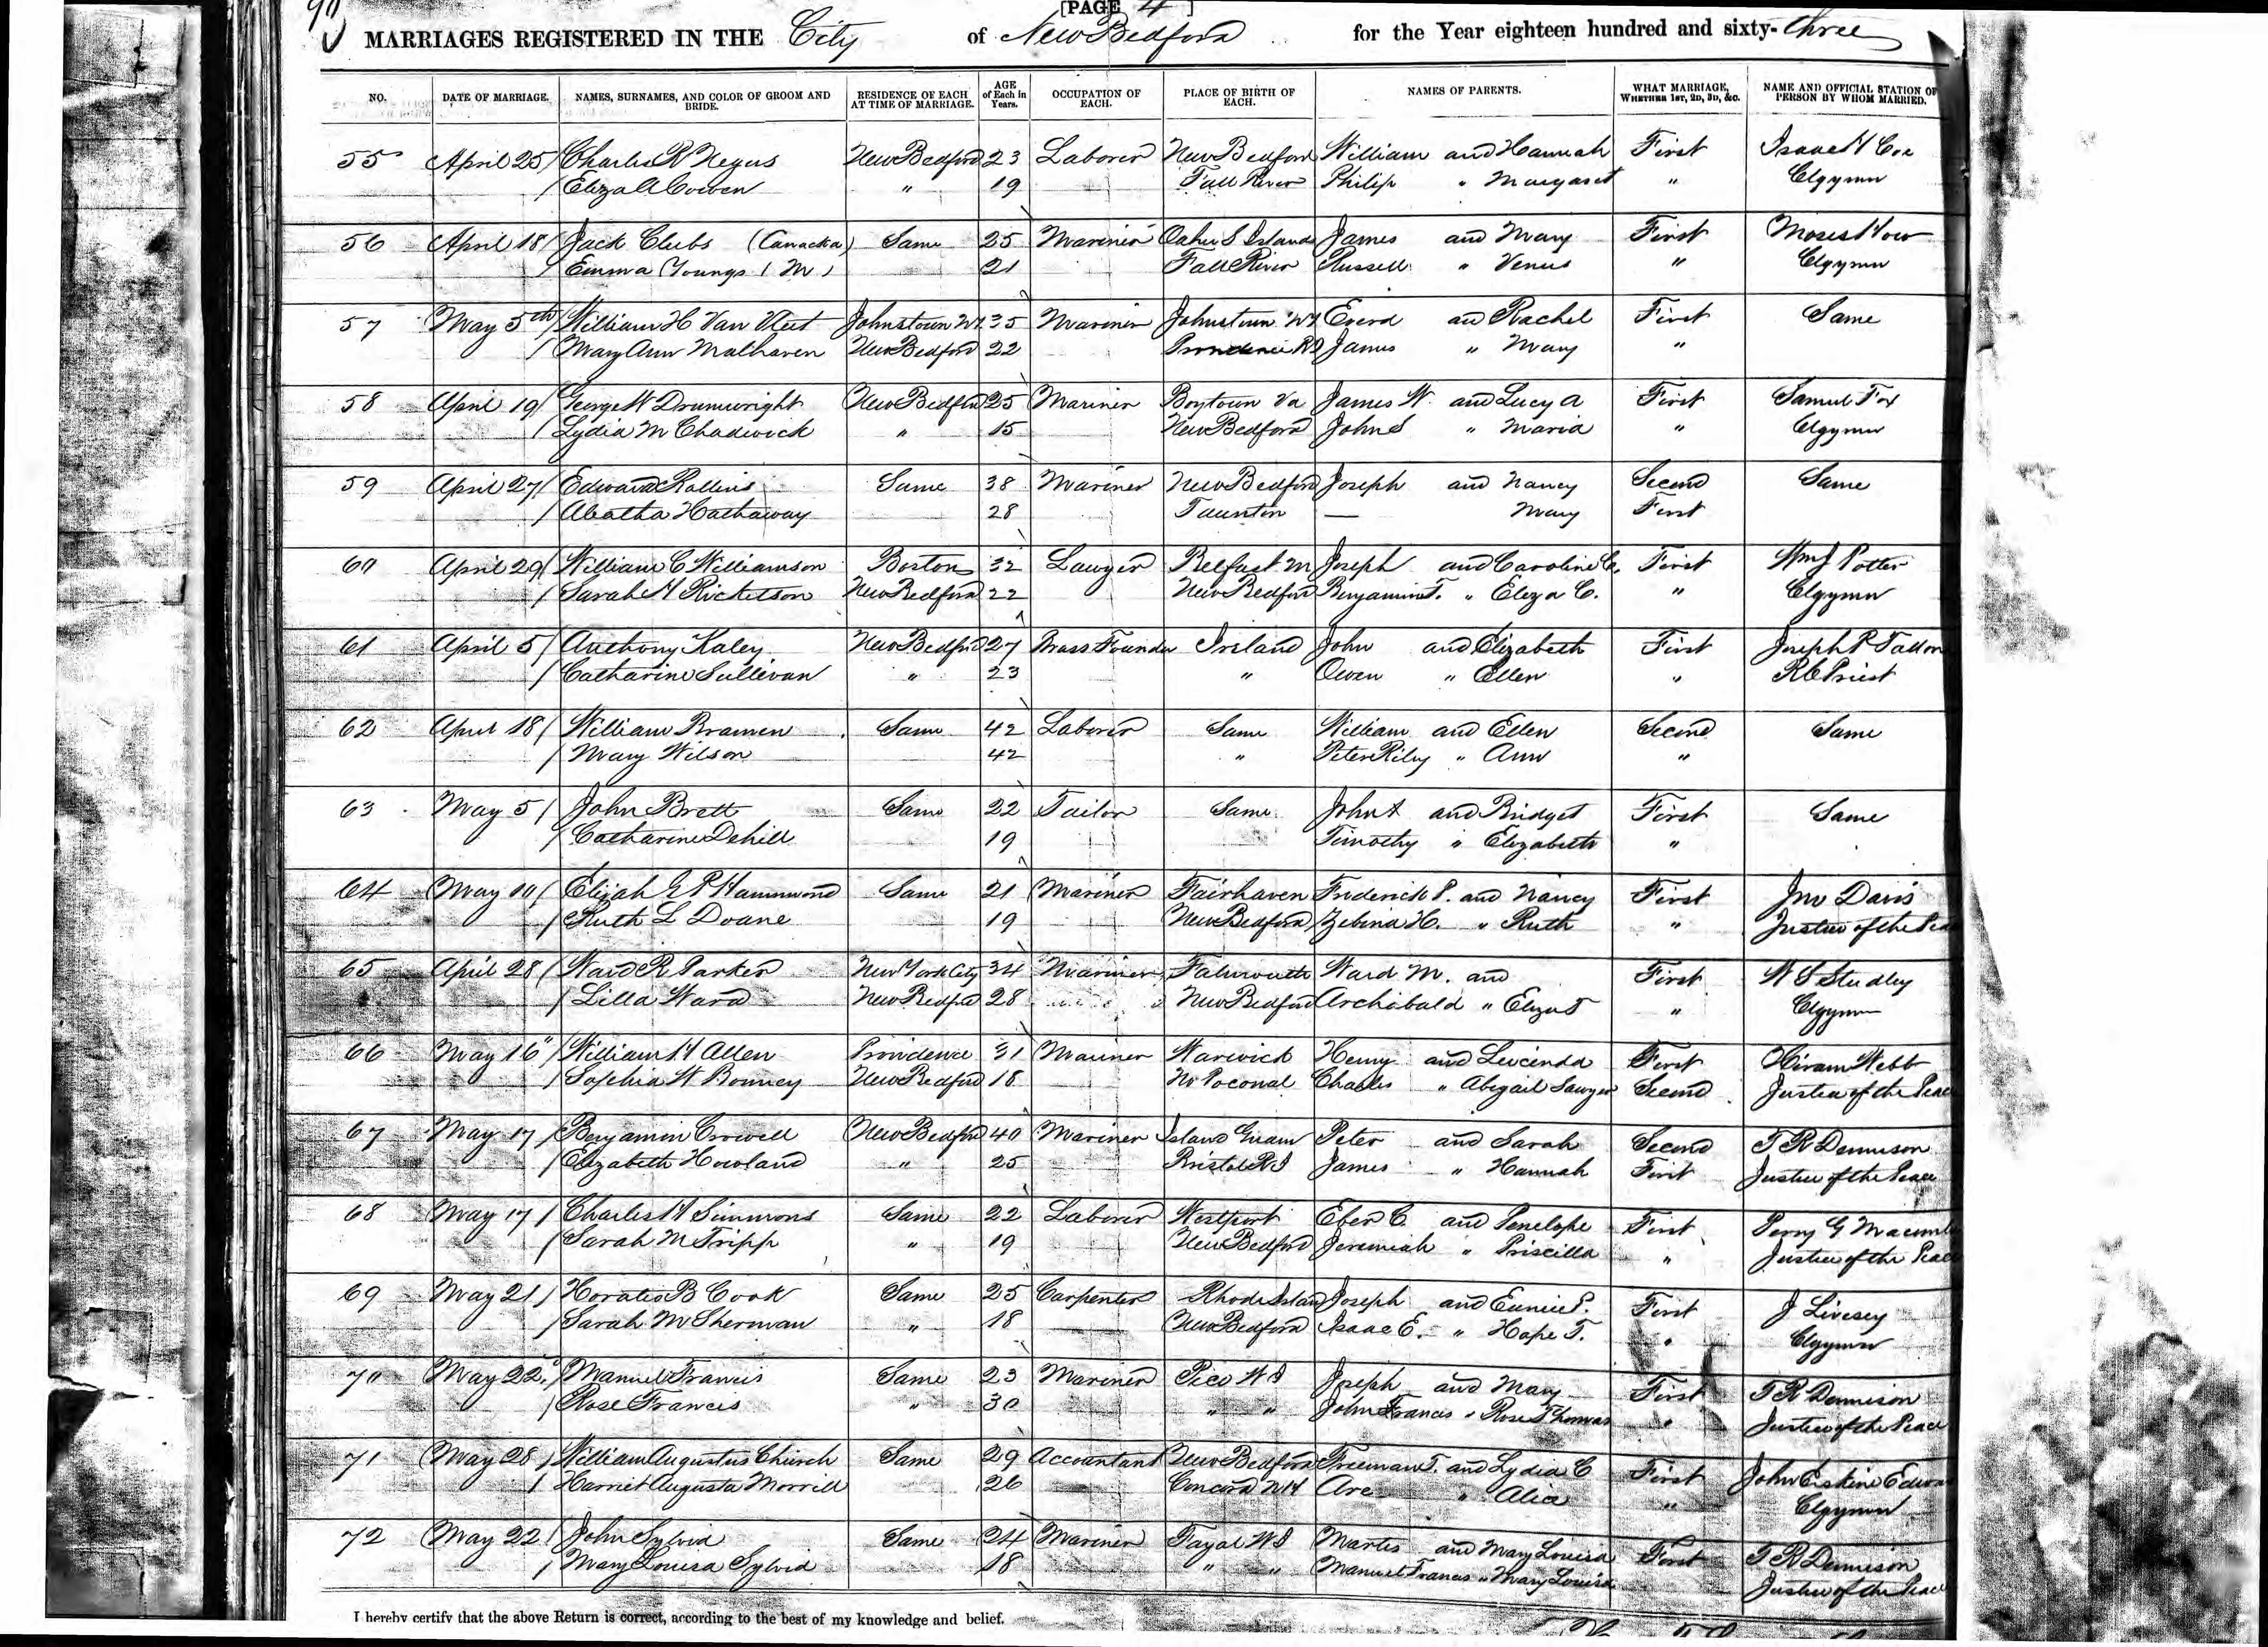 90
[PAGE 4 ]
MARRIAGES REGISTERED IN THE City of New Bedford for the Year eighteen hundred and sixty-three
NO. DATE OF MARRIAGE. NAMES, SURNAMES, AND COLOR OF GROOM AND BRIDE. RESIDENCE OF EACH AT TIME OF MARRIAGE. AGE of Each in Years. OCCUPATION OF EACH. PLACE OF BIRTH OF EACH. NAMES OF PARENTS. WHAT MARRIAGE, WHETHER 1ST, 2D, 3D, &C. NAME AND OFFICIAL STATION OF PERSON BY WHOM MARRIED.
55 April 25 Charles R Negus New Bedford 23 Laborer New Bedford William and Hannah First Isaac H Coe
Eliza A Cowen " 19 Fall River Philip " Margaret " Clgymn
56 April 18 Jack Clubs (Canacka) Same 25 Mariner Oahu S Islands James and Mary First Moses How
Emma Youngs (M) 21 Fall River Russell " Venus " Clgymn
57 May 5th William H Van Vleet Johnstown NY 35 Mariner Johnstown NY Everd and Rachel First Same
Mary Ann Malhaven New Bedford 22 Providence RI James " Mary "
58 April 19 George W Drumwright New Bedford 25 Mariner Boytown Va James W. and Lucy A First Samuel Fox
Lydia M Chadwick " 15 New Bedford John S " Maria " Clgymn
59 April 27 Edward Rollins Same 38 Mariner New Bedford Joseph and Nancy Second Same
Abatha Hathaway 28 Taunton — Mary First
60 April 29 William C Williamson Boston 32 Lawyer Belfast M Joseph and Caroline C. First Wm J Potter
Sarah H Ricketson New Bedford 22 New Bedford Benjamin T. " Eliza C. " Clgymn
61 April 5 Anthony Kaley New Bedford 27 Brass Founder Ireland John and Elizabeth First Joseph P Tallon
Catharine Sullivan " 23 " Owen " Ellen " RC Priest
62 April 18 William Bramen Same 42 Laborer Same William and Ellen Second Same
Mary Wilson 42 " Peter Riley " Ann "
63 May 5 John Brett Same 22 Tailor Same John and Bridget First Same
Catharine Dehill 19 Timothy " Elizabeth "
64 May 10 Elijah G P Hammond Same 21 Mariner Fairhaven Frederick P. and Nancy First Jno Davis
Ruth L Doane 19 New Bedford Zebina H. " Ruth " Justice of the Peace
65 April 28 Ward R Parker New York City 34 Mariner Falmouth Ward M. and First W S Studley
Lilla Ward New Bedford 28 New Bedford Archibald " Eliza T " Clgymn
66 May 16" William H Allen Providence 31 Mariner Warwick Henry and Lucinda First Hiram Webb
Sophia W Bonney New Bedford 18 Charles " Abigail Sawyer Second Justice of the Peace
67 May 17 Benjamin Crowell New Bedford 40 Mariner Island Guam Peter and Sarah Second T R Dennison
Elizabeth Howland " 25 Bristol RI James " Hannah First Justice of the Peace
68 May 17 Charles H Simmons Same 22 Laborer Westport Eber C. and Penelope First Perry G Macomb
Sarah M Tripp " 19 New Bedford Jeremiah " Priscilla " Justice of the Peace
69 May 21 Horatio B Cook Same 25 Carpenter Rhode Island Joseph and Eunice P. First J Livesey
Sarah M Sherman " 18 New Bedford Isaac E. " Hope T. " Clgymn
70 May 22" Manuel Francis Same 23 Mariner Pico W I Joseph and Mary First T R Dennison
Rose Francis " 30 " " John Francis " Rose Thomas " Justice of the Peace
71 May 28 William Augustus Church Same 29 Accountant New Bedford Freeman T. and Lydia C First John Erskine Edwar
Harriet Augusta Morrill 26 Concord NH " Clgymn
72 May 22 John Sylvid Same 24 Mariner Fayal W I and Mary Louisa First T R Dennison
Mary Louisa Sylvid 18 " " Manuel Francis " Mary Louisa Justice of the Peace
I hereby certify that the above Return is correct, according to the best of my knowledge and belief.